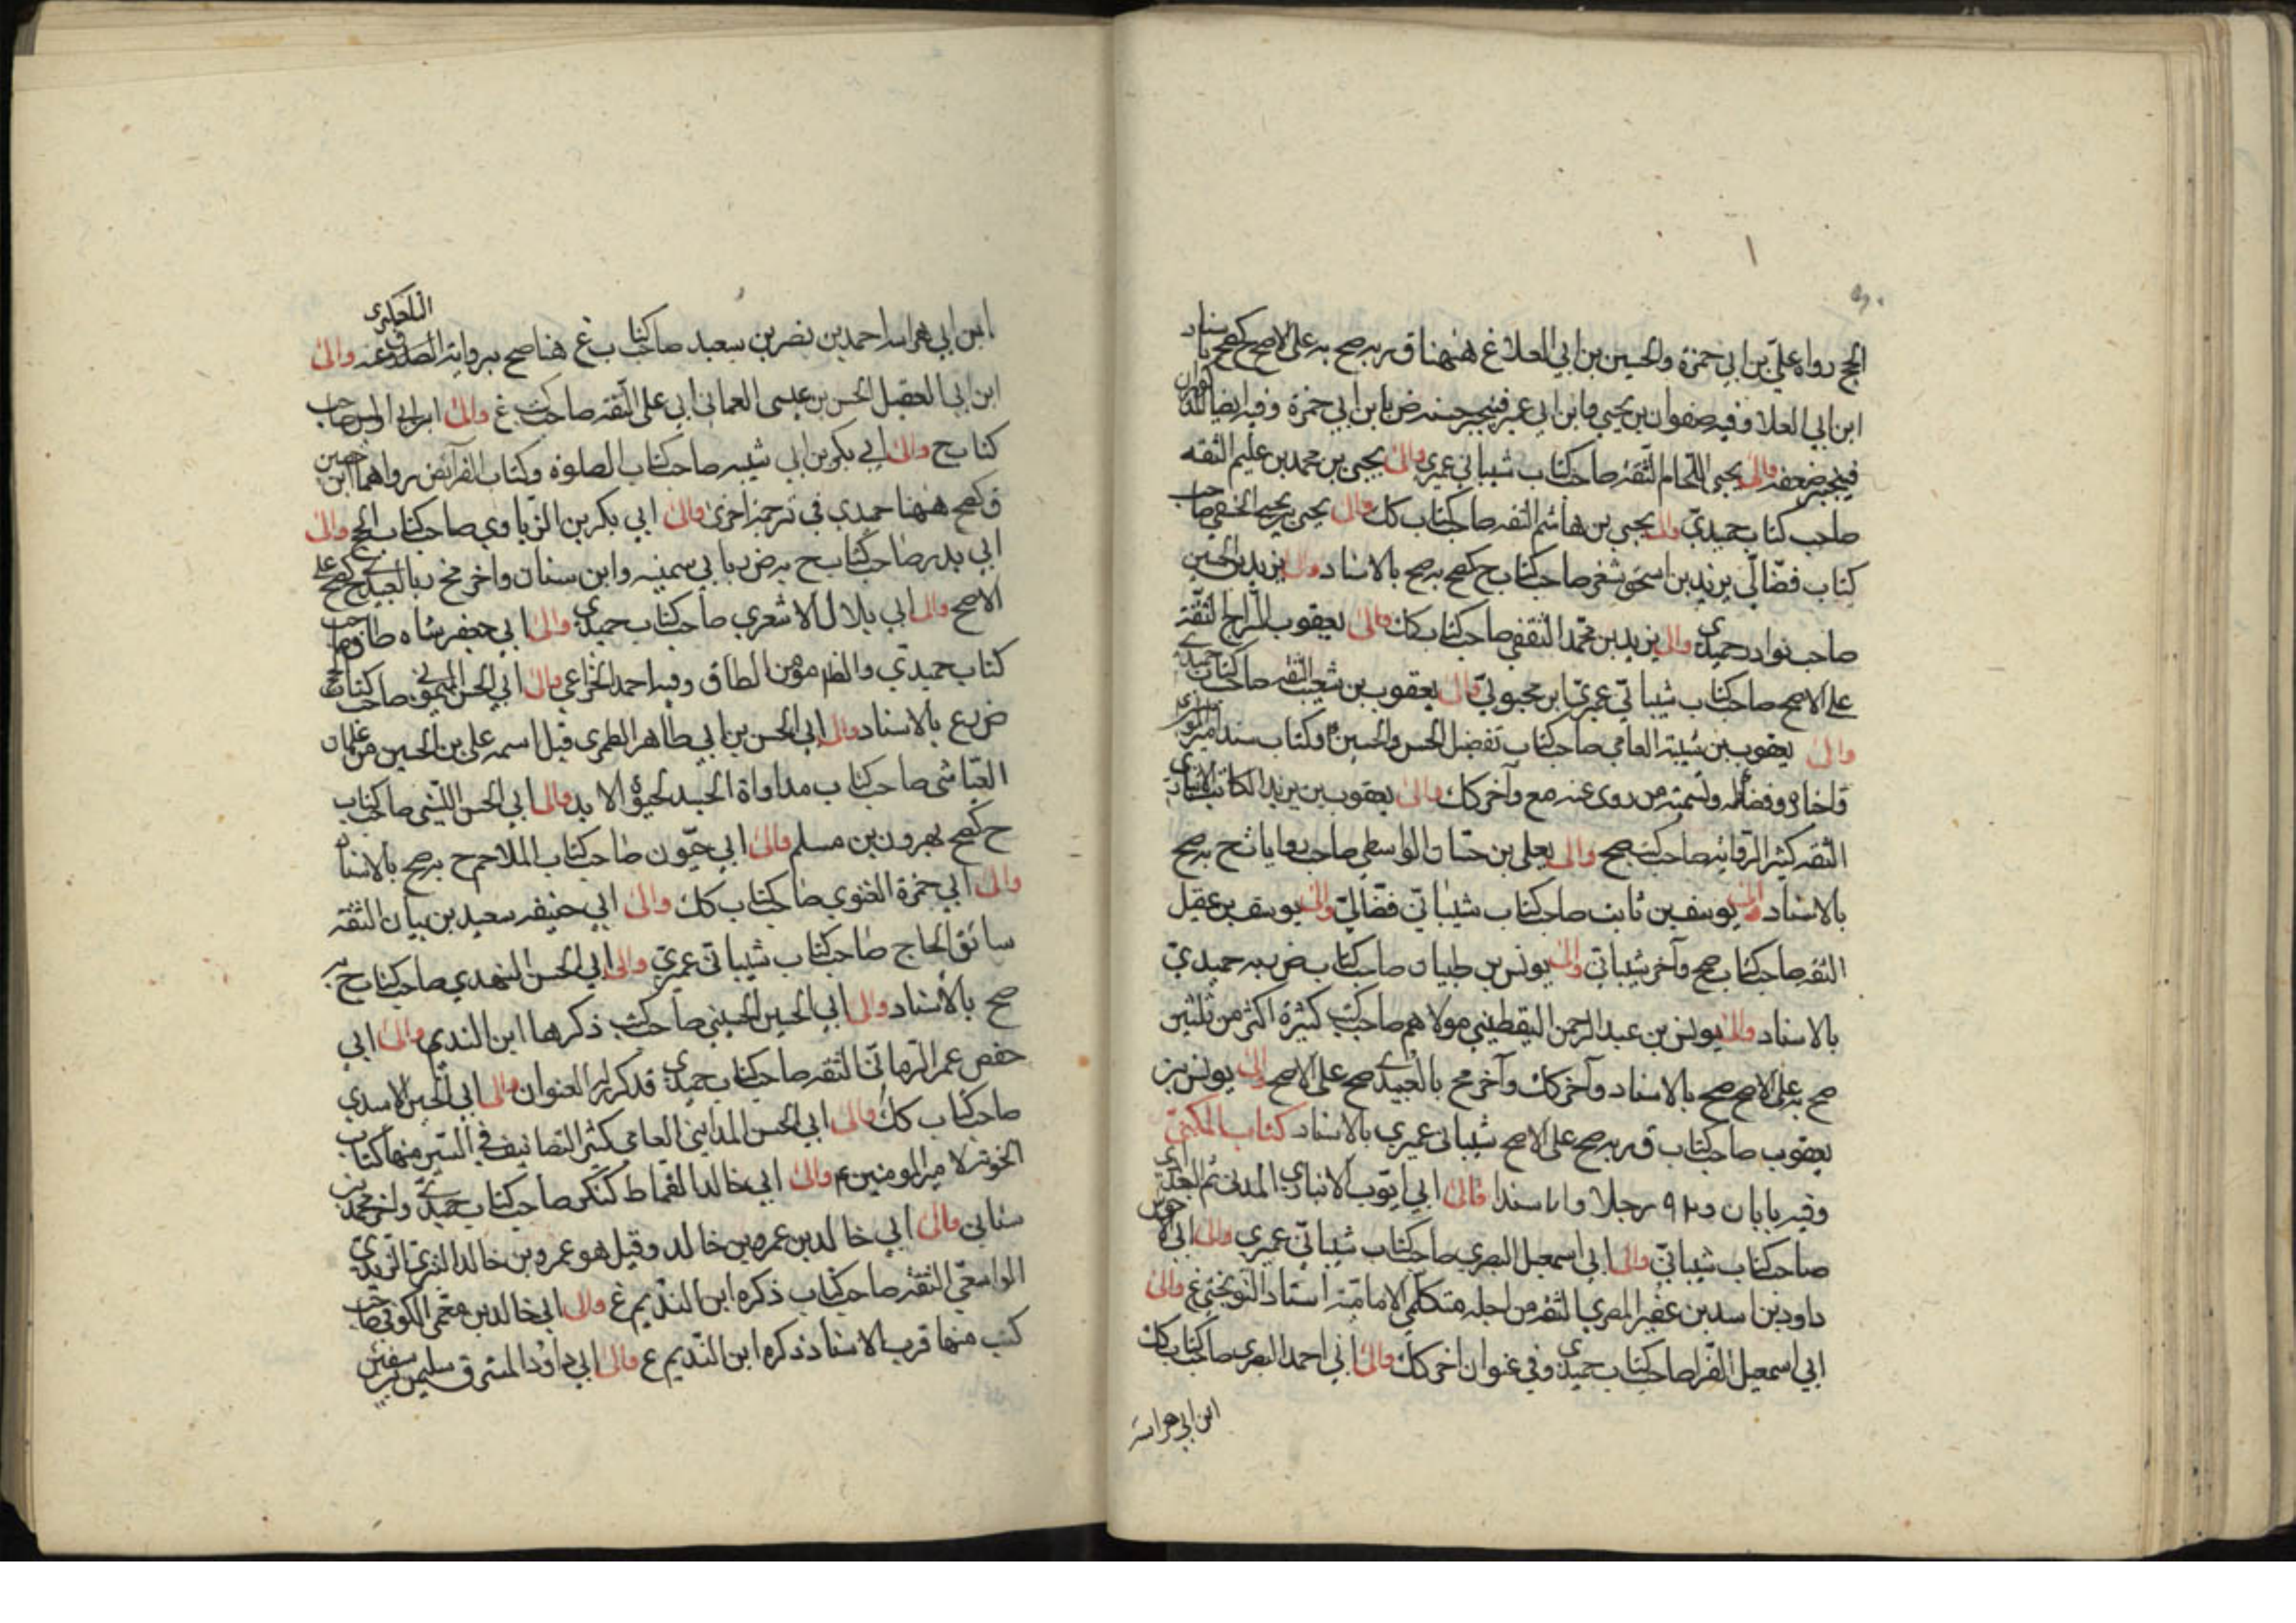 الحج رواه علي بن ابي حمزة والحسين بن ابي العلا غ ههنا ق ربه صح به على الاصح كصح باسناد
ابن ابي العلا وفيه صفوان بن يحيى وابن ابي عمير فينجبر حسنه ض بابن ابي حمزة وفيه ايضا
فينجبر ضعفه والى يحيى اللحام الثقة صاحب كتاب شيباني عميري والى يحيى بن محمد بن عليم الثقه
صاحب كتاب حميدي والى يحيى بن هاشم الثقه صاحب كتاب كك والى يحيى بن يحيى الحنفي صاحب
كتاب فضالي يزيد بن اسحق شغر صاحب كتاب ح كصح به صح بالاسناد والى يزيد بن الحسين
صاحب نوادر حميدي والى يزيد بن محمد الثقفي صاحب كتاب كك والى يعقوب السراج الثقة
على الاصح صاحب كتاب شيباني عميري ابن محبوبي والى يعقوب بن شعيب الثقه صاحب كتاب حميدي
والى يعقوب بن شيبة العامي صاحب كتاب تفضيل الحسن والحسين ع وكتاب مسند امير المومنين
واخباره وفضائله وتسمية من روى عنه مع وآخر كك والى يعقوب بن يزيد الكاتب الانباري
الثقه كثير الرواية صاحب كتب صح والى يعلى بن حسان الواسطي صاحب روايات ح به صح
بالاسناد والى يوسف بن ثابت صاحب كتاب شيباني فضالي والى يوسف بن عقيل
الثقه صاحب كتاب صح وآخر شيباني والى يونس بن ظبيان صاحب كتاب ض به حميدي
بالاسناد والى يونس بن عبد الرحمن اليقطيني مولاهم صاحب كتب كثيرة اكثر من ثلثين
صح به على الاصح صح بالاسناد وآخر كك وآخر مح بالعبيدي صح على الاصح والى يونس بن
يعقوب صاحب كتاب ق ربه صح على الاصح شيباني عميري بالاسناد كتاب المكنى
وفيه بابان و رجلا و سندا فالى ابي ايوب الانباري المدني ثم البغدادي
صاحب كتاب شيباني والى ابي اسمعيل البصري صاحب كتاب شيباني عميري والى ابي الاحوص
داود بن اسد بن عفير المصري الثقه من اجله متكلمي الامامية استاد النوبختي غ والى
ابي اسمعيل الفرا صاحب كتاب حميدي وفي عنوان اخر كك والى ابي احمد البصري صاحب كتاب كك
ابن ابي هراسه
ابن ابي هراسه احمد بن نصر بن سعيد صاحب كتاب غ هنا صح برواية الصدوق عنه والى
التلعكبري
ابن ابي العقيل الحسن بن عيسى العماني ابي علي الثقه صاحب كتب غ والى ابن ابي اويس صاحب
كتاب ح والى ابي بكر بن ابي شيبه صاحب كتاب الصلوة وكتاب الفرائض رواهما ابن حصين
ق كصح ههنا حميدي في ترجمة اخرى والى ابي بكر بن الزياوي صاحب كتاب الحج والى
ابي بدر صاحب كتاب ح به ض ربا بي سمينه وابن سنان واخر مح بالعبيدي ح كصح على
الاصح والى ابي بلال الاشعري صاحب كتاب حميدي والى ابي جعفر شاه طاق صاحب
كتاب حميدي والظ مومن الطاق وفيه احمد الخزاعي والى ابي الحسن الميموني صاحب كتاب الحج
ض ع بالاسناد والى ابي الحسن بن ابي طاهر الطبري قيل اسمه علي بن الحسين من غلمان
العياشي صاحب كتاب مداواة الجسد لحيوة الابد والى ابي الحسن الليثي صاحب كتاب
ح كصح بهرون بن مسلم والى ابي حيون صاحب كتاب الملاحم ح به صح بالاسناد
والى ابي حمزة الغنوي صاحب كتاب كك والى ابي حنيفه سعيد بن بيان الثقه
سائق الحاج صاحب كتاب شيباني عميري والى ابي الحسن النهدي صاحب كتاب ح به
صح بالاسناد والى ابي الحسين الحسيني صاحب كتب ذكرها ابن النديم والى ابي
حفص عمر الرماني الثقه صاحب كتاب حميدي قد كرر العنوان والى ابي الحسين الاسدي
صاحب كتاب كك والى ابي الحسن المدايني العامي كثير التصانيف في السير منها كتاب
الخونة لامير المومنين ع والى ابي خالد القماط كنكر صاحب كتاب حميدي ولخر محمد بن
سناني والى ابي خالد بن عمرو بن خالد وقيل هو عمرو بن خالد الزيدي
الواسعي الثقه صاحب كتاب ذكره ابن النديم غ والى ابي خالد بن الكوفي صاحب
كتب منها قرب الاسناد ذكره ابن النديم ع والى ابي داود المسترق سليمن بن سفين